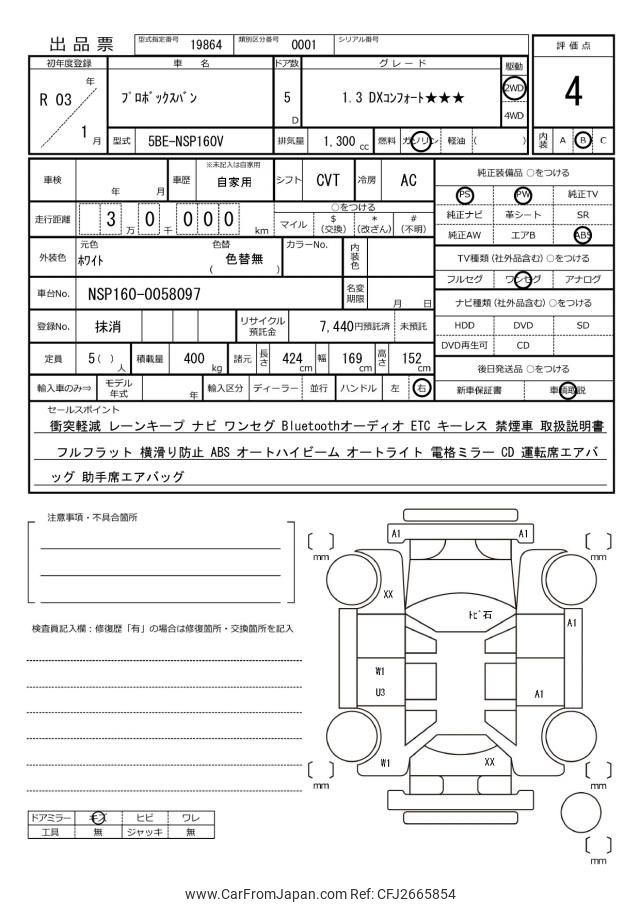 出品票 型式指定番号 19864 類別区分番号 0001 シリアル番号
評価点
4
内装 A B C
初年度登録 車名 ドア数 グレード 駆動
R 03 年 1 月
プロボックスバン 5 D 1.3 DXコンフォート★★★ 2WD
4WD
型式 5BE-NSP160V 排気量 1,300 cc 燃料 ガソリン 軽油 ( )
車検 年 月 車歴 ※未記入は自家用 自家用 シフト CVT 冷房 AC
走行距離 3 万 0 千 0 0 0 km
○をつける
マイル $ (交換) * (改ざん) # (不明)
外装色 元色 ホワイト 色替 ( 色替無 ) カラーNo. 内装色
車台No. NSP160-0058097 名変期限 月 日
登録No. 抹消 リサイクル預託金 7,440円預託済 未預託
定員 5( ) 人 積載量 400 kg 諸元 長さ 424 cm 幅 169 cm 高さ 152 cm
輸入車のみ⇒ モデル年式 年 輸入区分 ディーラー 並行 ハンドル 左 右
純正装備品 ○をつける
PS PW 純正TV
純正ナビ 革シート SR
純正AW エアB ABS
TV種類(社外品含む) ○をつける
フルセグ ワンセグ アナログ
ナビ種類(社外品含む) ○をつける
HDD DVD SD
DVD再生可 CD
後日発送品 ○をつける
新車保証書 車輌取説
セールスポイント
衝突軽減 レーンキープ ナビ ワンセグ Bluetoothオーディオ ETC キーレス 禁煙車 取扱説明書
フルフラット 横滑り防止 ABS オートハイビーム オートライト 電格ミラー CD 運転席エアバ
ッグ 助手席エアバッグ
注意事項・不具合箇所
検査員記入欄：修復歴「有」の場合は修復箇所・交換箇所を記入
ドアミラー キズ ヒビ ワレ
工具 無 ジャッキ 無
A1 A1
[ ] mm [ ] mm
XX
トビ石
A1
W1
U3
A1
W1 XX
[ ] mm [ ] mm
[ ] mm
www.CarFromJapan.com Ref: CFJ2665854